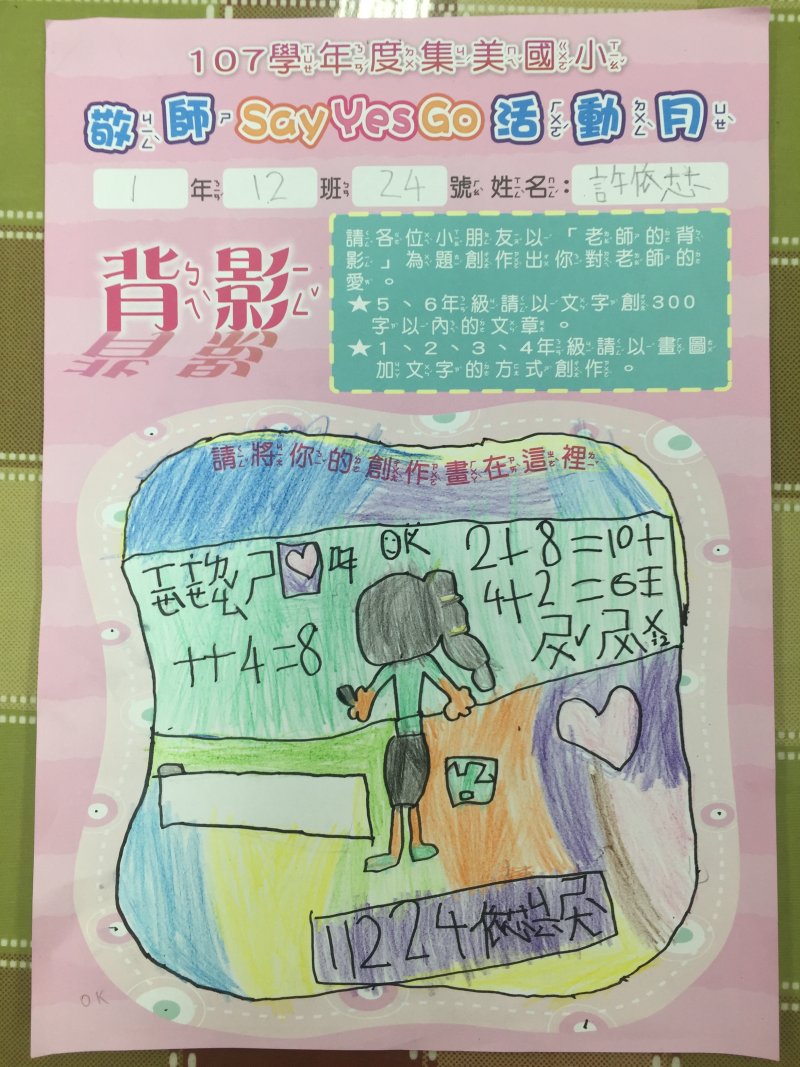 107學年度集美國小
敬師SayYesGo活動月
1年12班24號姓名:許依芯
背影
請各位小朋友以「老師的背
影」為題創作出你對老師的
愛。
★5、6年級請以文字創300
字以內的文章。
★1、2、3、4年級請以畫圖
加文字的方式創作。
請將你的創作畫在這裡
OK
2+8=10
4+2=6王
++4=8
11224依芯
OK